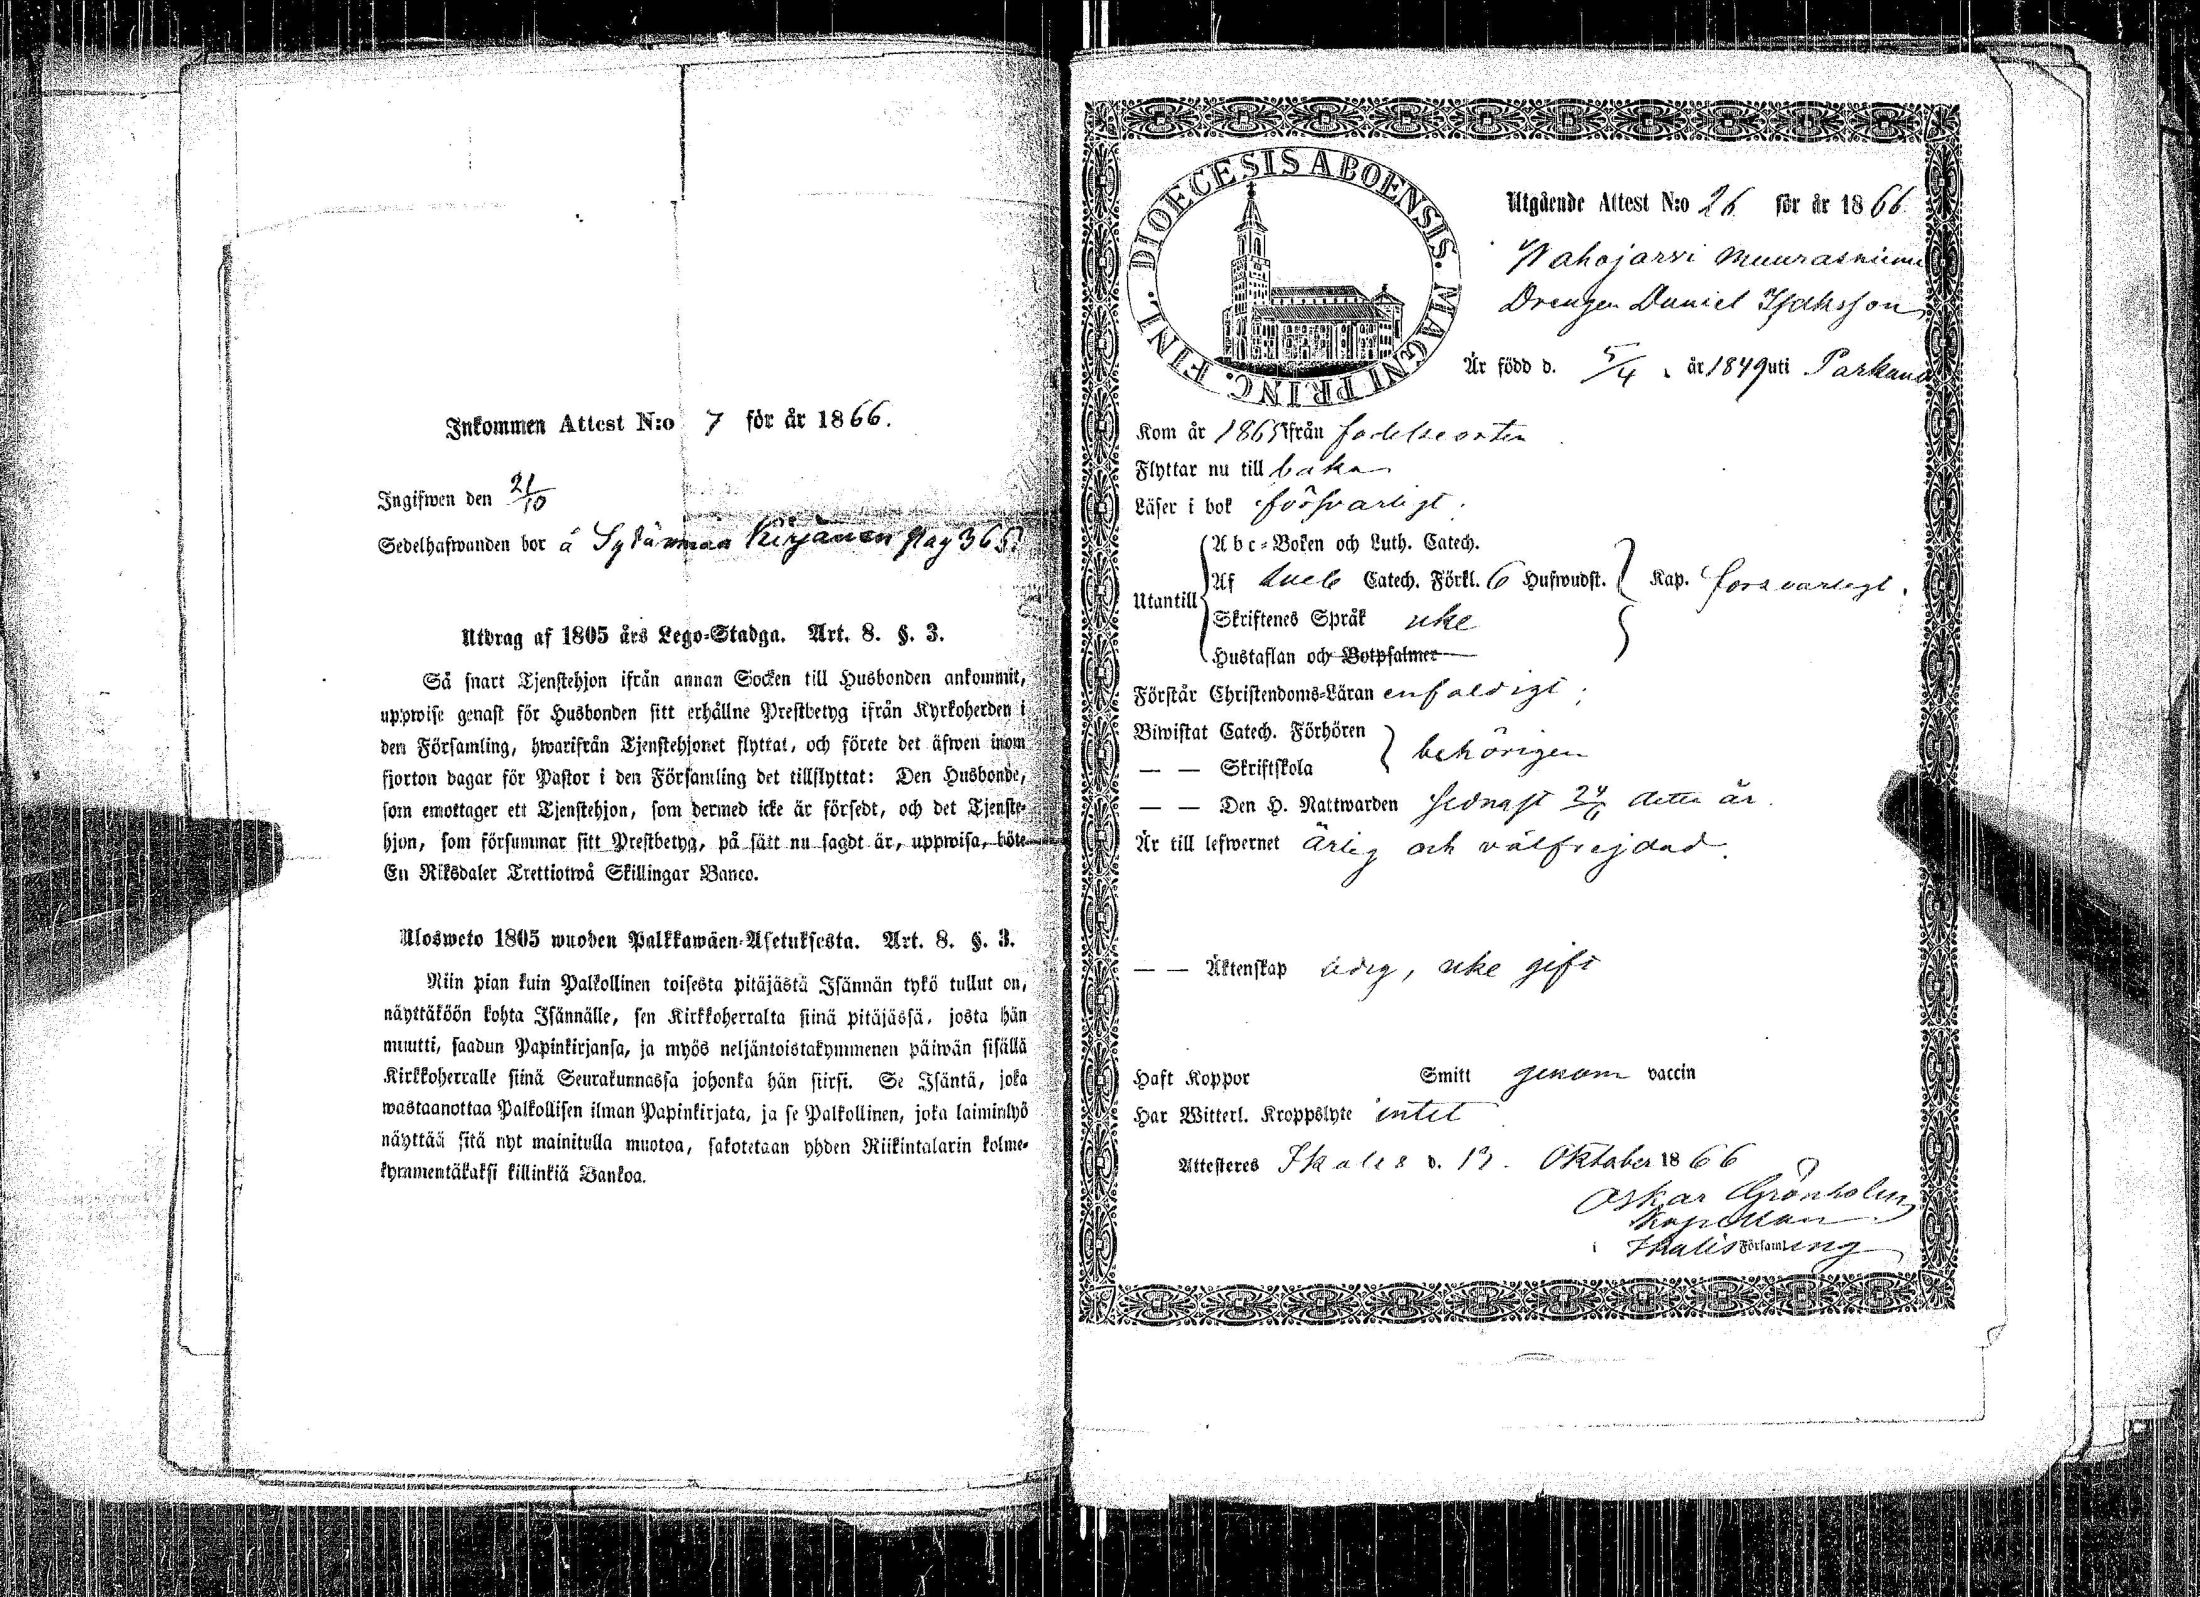 Inkommen Attest N:o 7 för år 1866.
Ingifwen den 21/10
Sedelhafwanden bor å Kirjanen pag 365
Utdrag af 1805 års Lego-Stadga. Art. 8. §. 3.
Så snart Tjenstehjon ifrån annan Socken till Husbonden ankommit,
uppwise genast för Husbonden sitt erhållne Prestbetyg ifrån Kyrkoherden i
den Församling, hwarifrån Tjenstehjonet flyttat, och förete det äfwen inom
fjorton dagar för Pastor i den Församling det tillflyttat: Den Husbonde,
som emottager ett Tjenstehjon, som dermed icke är försedt, och det Tjenste-
hjon, som försummar sitt Prestbetyg, på sätt nu sagdt är, uppwisa, böte
En Riksdaler Trettiotwå Skillingar Banco.
Ulosweto 1805 wuoden Palkkawäen-Asetuksesta. Art. 8. §. 3.
Niin pian kuin Palkollinen toisesta pitäjästä Isännän tykö tullut on,
näyttäköön kohta Isännälle, sen Kirkkoherralta siinä pitäjässä, josta hän
muutti, saadun Papinkirjansa, ja myös neljäntoistakymmenen päiwän sisällä
Kirkkoherralle siinä Seurakunnassa johonka hän siirsi. Se Isäntä, joka
wastaanottaa Palkollisen ilman Papinkirjata, ja se Palkollinen, joka laiminlyö
näyttää sitä nyt mainitulla muotoa, sakotetaan yhden Riikintalarin kolme-
kymmentäkaksi killinkiä Bankoa.
DIOECESIS ABOENSIS. MAGNI PRINC. FINL.
Utgående Attest N:o 26 för år 1866
Wahojärvi Muurasniemi
Drengen Daniel Isaksson
Är född d. 5/4 år 1849 uti Parkano
Kom år 1865 ifrån födelseorten
Flyttar nu till baka
Läser i bok försvarligt.
Abc-Boken och Luth. Catech.
Utantill Af Catech. Förkl. 6 Hufwudst. Kap. försvarligt.
Skriftenes Språk icke
Hustaflan och Botpsalmer
Förstår Christendoms-Läran enfaldigt;
Biwistat Catech. Förhören
behörigen
— — Skriftskola
— — Den H. Nattwarden sednast 24/6 detta år.
Är till lefwernet ärlig och välfrejdad.
— — Äktenskap ledig, icke gift
Haft Koppor Smitt genom vaccin
Har Witterl. Kroppslyte intet
Attesteres Ikalis d. 13. Oktober 1866
Oskar Grönholm
Kapellan
i Ikalis Församling